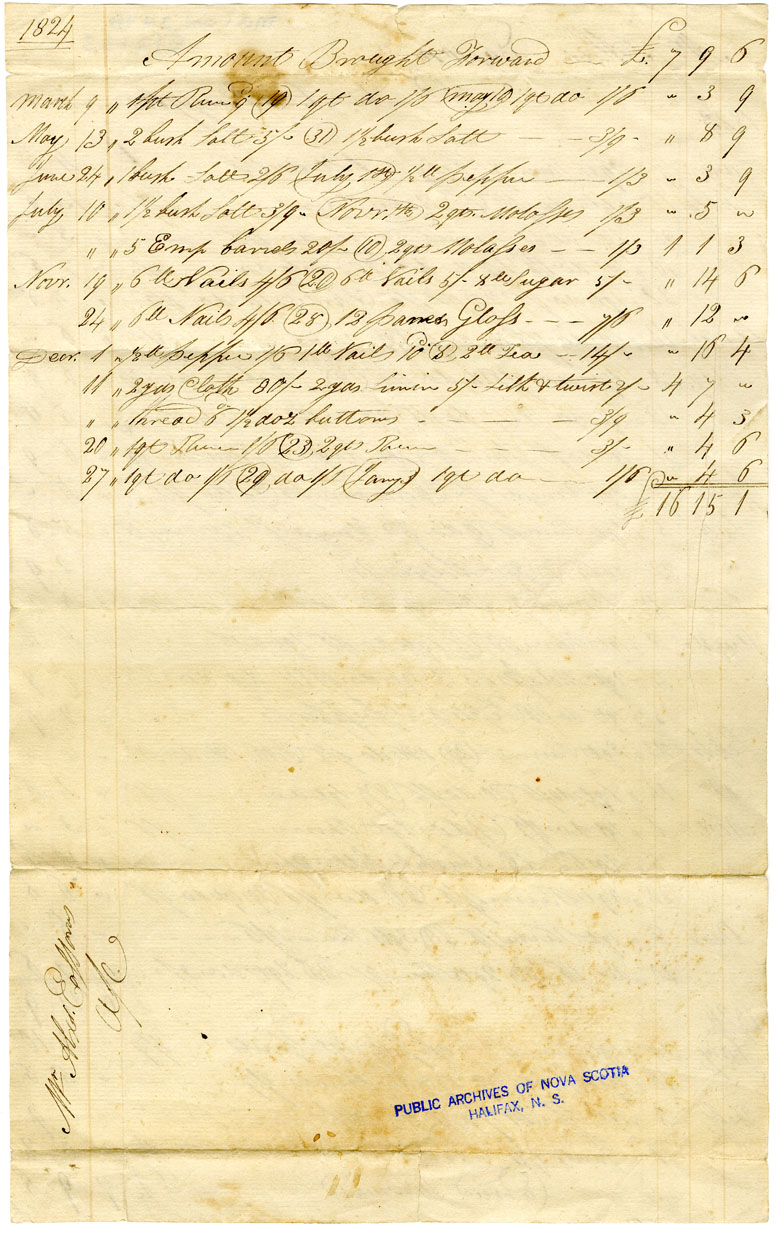 1824
Amount Brought Forward — £. 7 9 6
March 9 " 1pt Rum 9 (19) 1qt do 1/6 (may 19) 1qt do 1/6 " 3 9
May 13 " 2 bush Salt 5/- (31) 1½ bush Salt — — 3/9 - " 8 9
June 24 " 1 bush Salt 2/6 (July ½ lb pepper — 1/3 " 3 9
July 10 " 1½ bush Salt 3/9 " (Novr. 2 qts Molasses 1/3 " 5 "
" " 5 Emp barrels 20/- (10) 2 qts Molasses — — 1/3 1 1 3
Novr. 19 " 6 lb Nails 4/6 (20) 6 lb Nails 5/- 8 lb Sugar 5/- " 14 6
24 " 6 lb Nails 4/6 (28) 12 panes Glass - — - 7/6 " 12 "
Decr. 1 " ½ lb pepper 1/6 1 lb Nails 10 (8) 2 lb Tea — 14/- " 16 4
11 " 2 yds Cloth 80/- 2 yds Linin 5/- Silk & twist 2/- 4 7 "
" " thread 6 1½ doz buttons - — - — - 3/9 " 4 3
20 " 1qt Rum 1/6 (23) 2 qt Rum — — 3/- " 4 6
27 " 1qt do 1/6 (29) do 1/6 (Jany 1qt do — 1/6 " 4 6
£ 16 15 1
Mr. Alxd.
a/c.
PUBLIC ARCHIVES OF NOVA SCOTIA
HALIFAX, N. S.